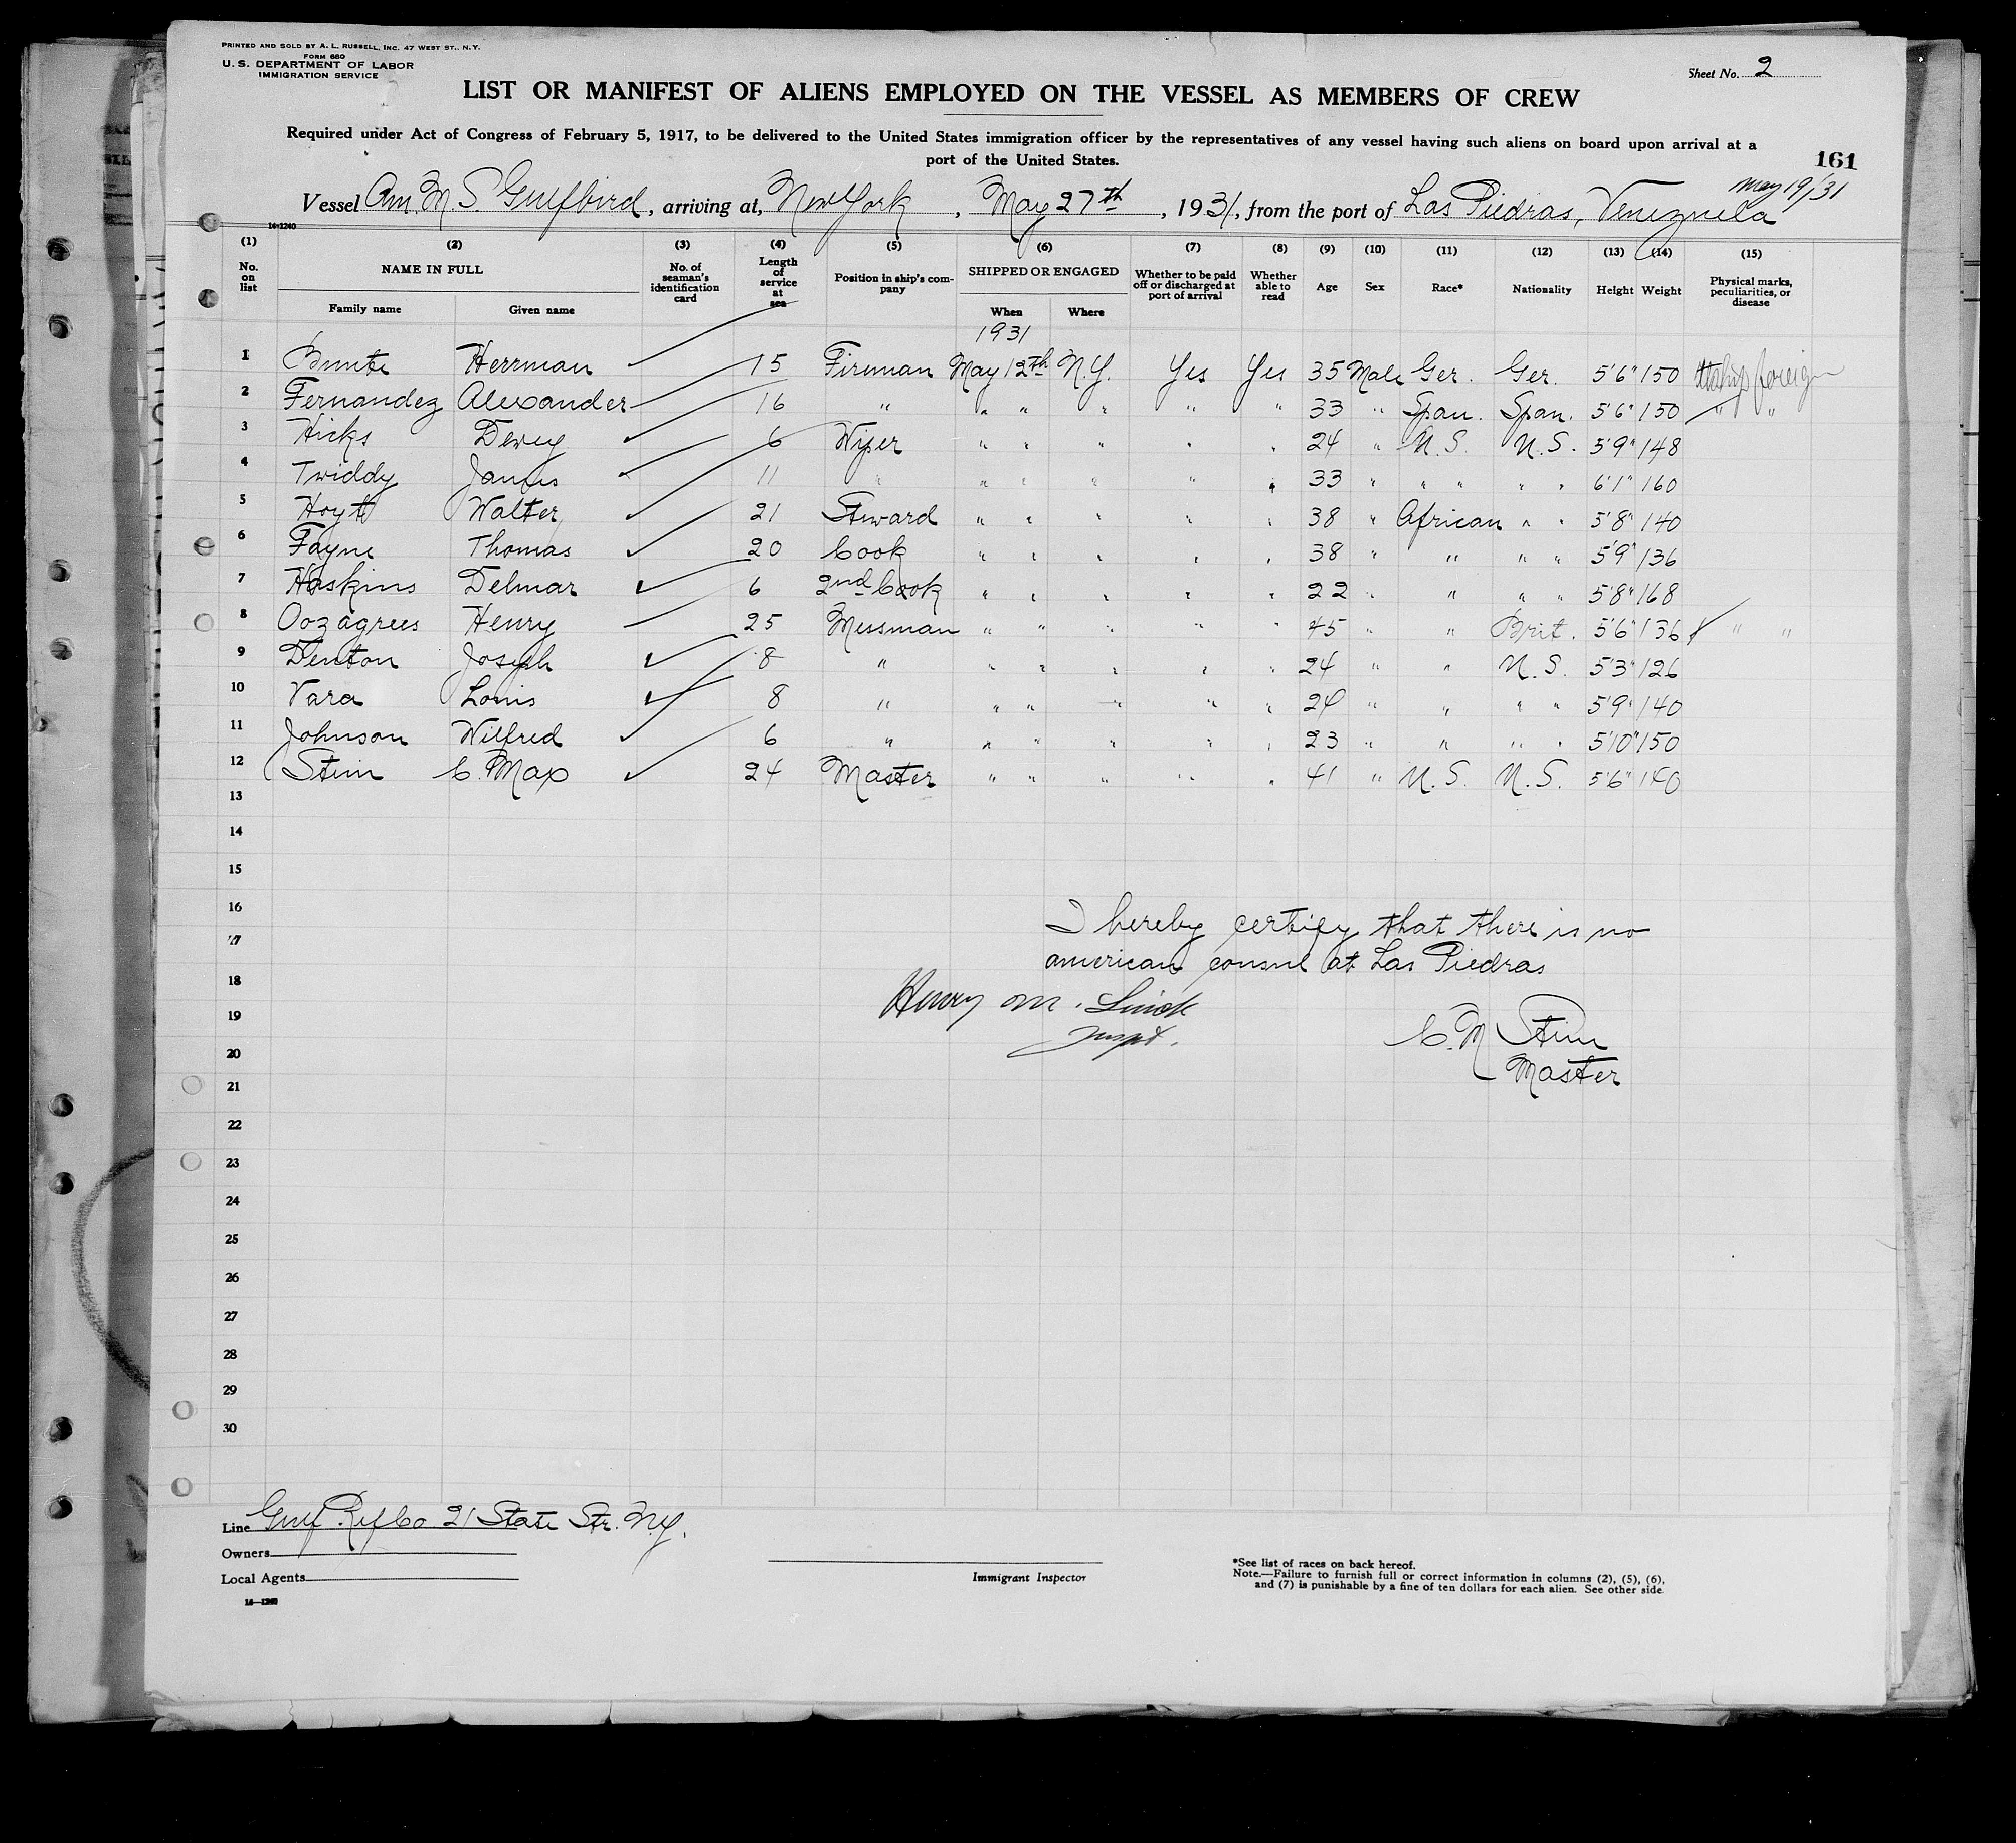 PRINTED AND SOLD BY A. L. RUSSELL, INC. 47 WEST ST., N.Y.
FORM 680
U. S. DEPARTMENT OF LABOR
IMMIGRATION SERVICE
Sheet No. 2
LIST OR MANIFEST OF ALIENS EMPLOYED ON THE VESSEL AS MEMBERS OF CREW
Required under Act of Congress of February 5, 1917, to be delivered to the United States immigration officer by the representatives of any vessel having such aliens on board upon arrival at a
port of the United States.
161
May 19/31
Vessel Am. M. S. Gulfbird, arriving at, New York, May 27th, 1931, from the port of Las Piedras, Venezuela
14-1240
(1) (2) (3) (4) (5) (6) (7) (8) (9) (10) (11) (12) (13) (14) (15)
No. on list NAME IN FULL No. of seaman's identification card Length of service at sea Position in ship's company SHIPPED OR ENGAGED Whether to be paid off or discharged at port of arrival Whether able to read Age Sex Race* Nationality Height Weight Physical marks, peculiarities, or disease
Family name Given name When Where
1931
1 Bunte Herrman 15 Fireman May 12th N.Y. Yes Yes 35 Male Ger. Ger. 5'6" 150 foreign
2 Fernandez Alexander 16 " " " " " " 33 " Span. Span. 5'6" 150 " "
3 Hicks Dewey 6 Wiper " " " " " 24 " U.S. U.S. 5'9" 148
4 Twiddy James 11 " " " " " " 33 " " " " " 6'1" 160
5 Hoyt Walter 21 Steward " " " " " 38 " African " " 5'8" 140
6 Fayne Thomas 20 Cook " " " " " 38 " " " " 5'9" 136
7 Haskins Delmar 6 2nd Cook " " " " " 22 " " " " 5'8" 168
8 Oozagrees Henry 25 Messman " " " " " 45 " " Brit. 5'6" 136 " "
9 Denton Joseph 8 " " " " " " 24 " " U.S. 5'3" 126
10 Vara Louis 8 " " " " " " 24 " " " " 5'9" 140
11 Johnson Wilfred 6 " " " " " " 23 " " " " 5'10" 150
12 Stim C. Max 24 Master " " " " " 41 " U.S. U.S. 5'6" 140
13
14
15
16
17
18
19
20
21
22
23
24
25
26
27
28
29
30
I hereby certify that there is no
american consul at Las Piedras
Henry M.
Inspt.
C. M Stim
Master
Line Gulf Ref Co 21 State Str. N.Y.
Owners
Local Agents
14-1240
Immigrant Inspector
*See list of races on back hereof.
Note.—Failure to furnish full or correct information in columns (2), (5), (6),
and (7) is punishable by a fine of ten dollars for each alien. See other side